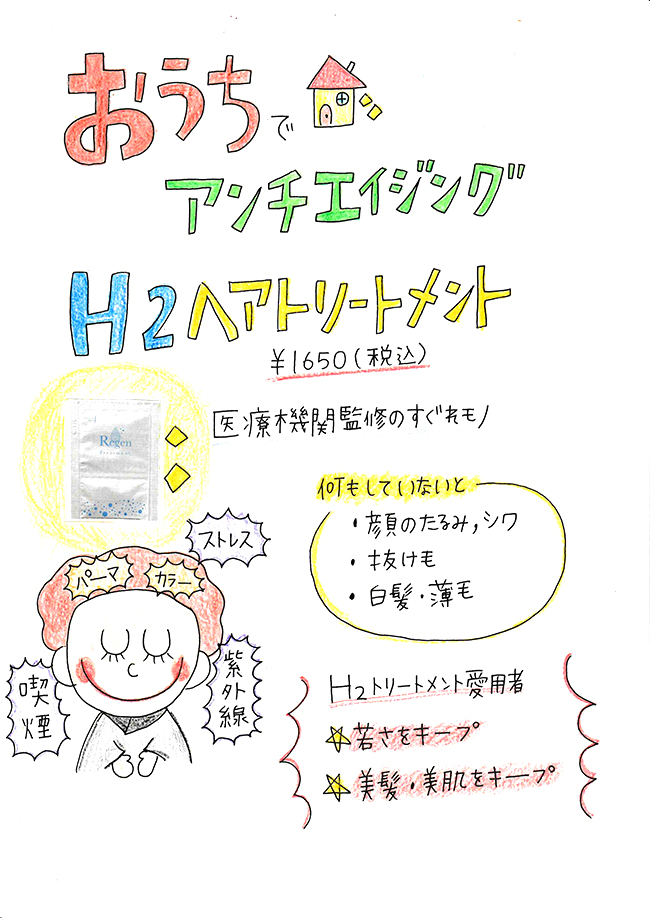 おうちで
アンチエイジング
H2ヘアトリートメント
¥1650(税込)
Regen
Treatment
医療機関監修のすぐれモノ
何もしていないと
・顔のたるみ,シワ
・抜け毛
・白髪・薄毛
ストレス
パーマ
カラー
喫煙
紫外線
H2トリートメント愛用者
☆若さをキープ
☆美髪・美肌をキープ